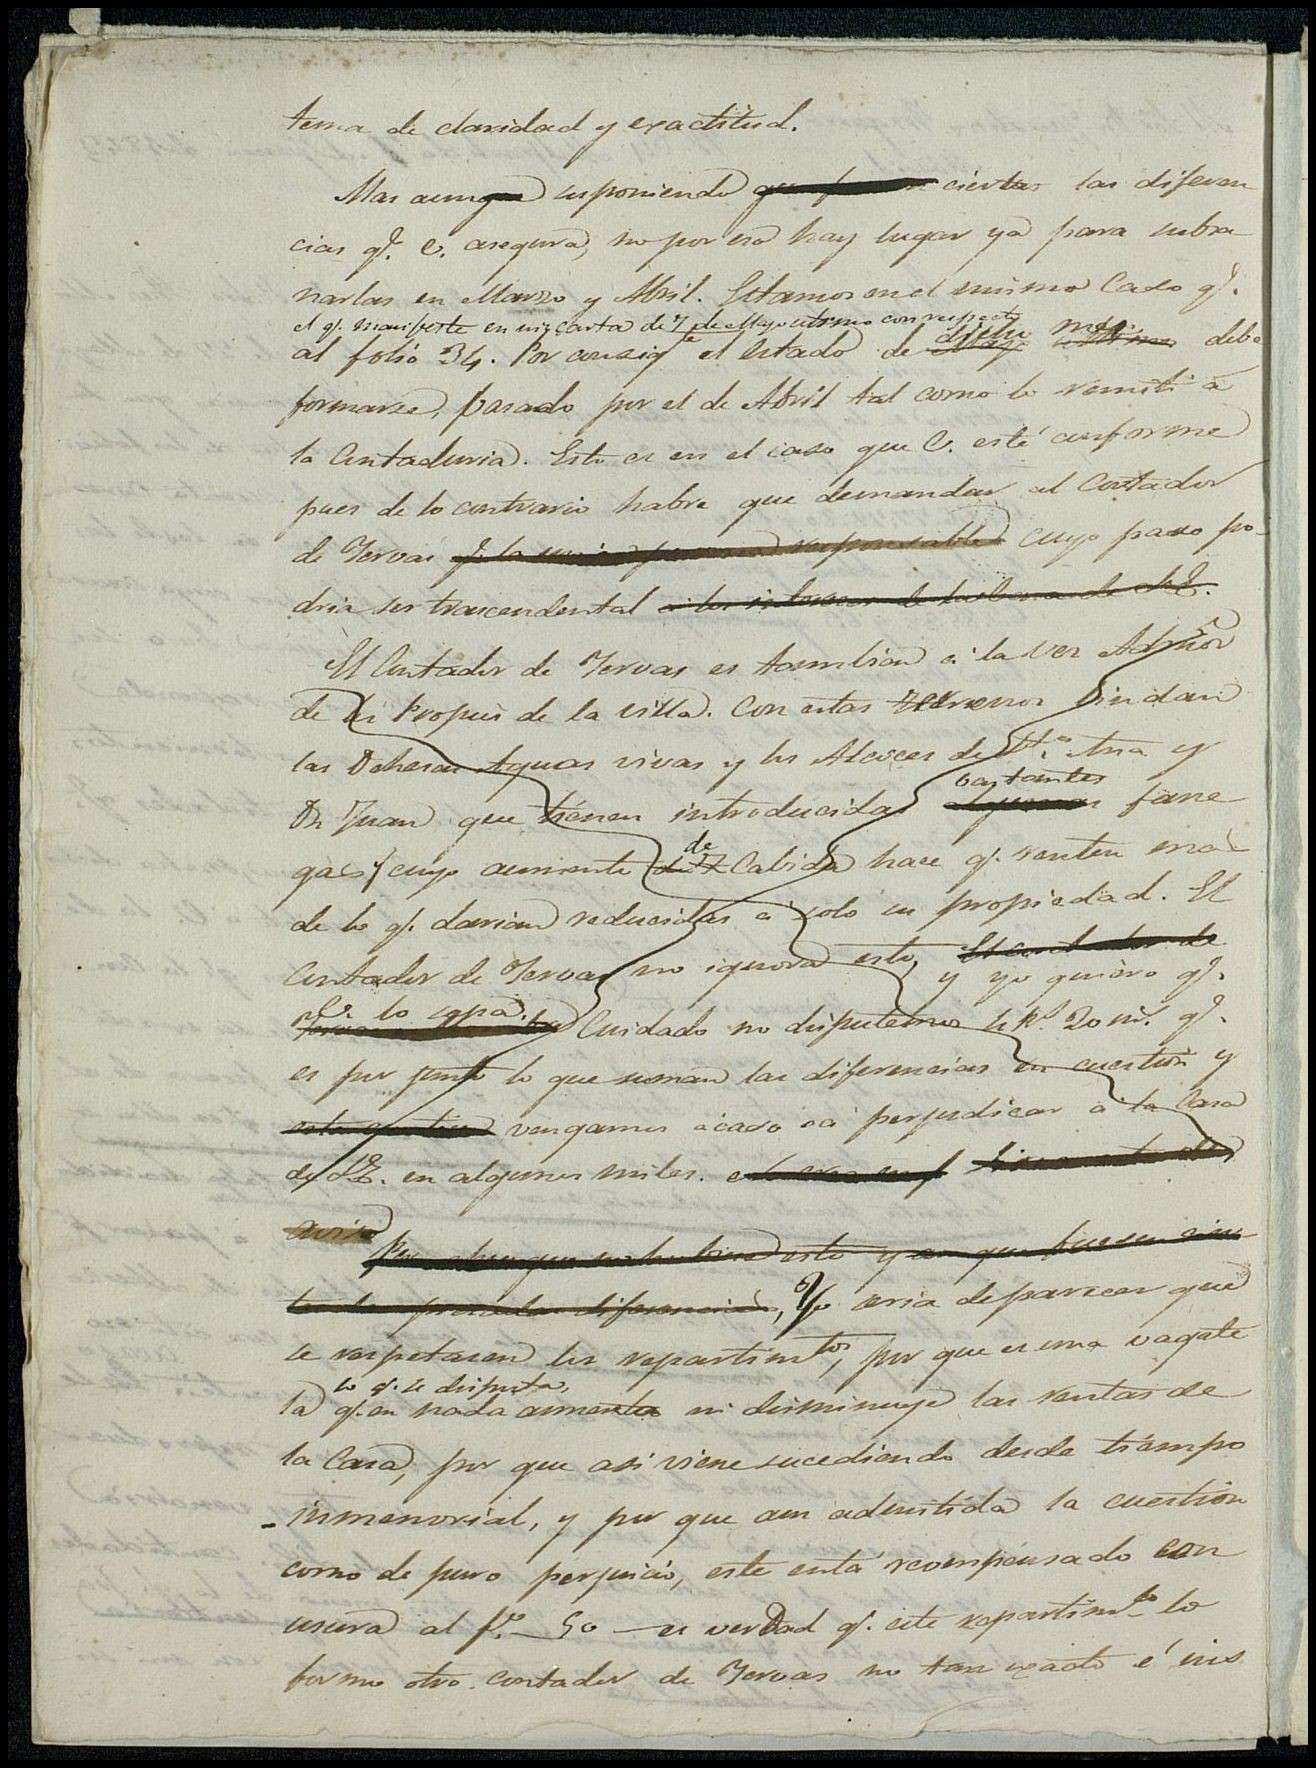 tema de claridad y exactitud.
Mas aunque suponiendo que ciertas las diferen
cias q.e V. asegura, no por eso hay lugar ya para subsa
narlas en Marzo y Abril. Estamos en el mismo Caso q.e
el q.e manifeste en mi carta de 7 de Mayo ultimo con respecto
al folio 34. Por consig.te el estado de dicho mes debe
formarse, pasado por el de Abril tal como lo remiti a
la Contaduria. Esto es en el caso que V. esté conforme
pues de lo contrario habra que demandar al Contador
de Yervas q.e la unica persona responsable cuyo paso po-
dria ser trascendental a los intereses de la Casa de S.E.
El Contador de Yervas es tambien á la vez Adm.or
de los Propios de la villa. Con estos terrenos lindan
las Dehesas Aguas vivas y los Alcoces de S.ta Ana y
Dn Juan que tienen introducidas bastantes fane
gas y cuyo aumento de Cabida hace q.e renten mas
de lo q.e darian reducidas a solo su propiedad. El
Contador de Yervas no ignora esto, El contador de
y yo quiero q.e
V. lo sepa. Cuidado no disputemos los 20 m.s q.e
es por junto lo que suman las diferencias en cuestion y
vengamos acaso á perjudicar á la Casa
de S.E. en algunos miles.
aviso
Por esto y que fuesen cier
tas las diferencias, Yo seria de parecer que
se respetasen los repartim.tos, por que es una vagate
lo q.e se disputa,
la q.e en nada aumenta ni disminuye las rentas de
la Casa, por que asi viene sucediendo desde tiempo
inmemorial, y por que aun admitida la cuestion
como de puro perjuicio, este está recompensado con
usura al f.o 50 — es verdad q.e este repartim.to lo
formo otro contador de Yervas no tan exacto é ins